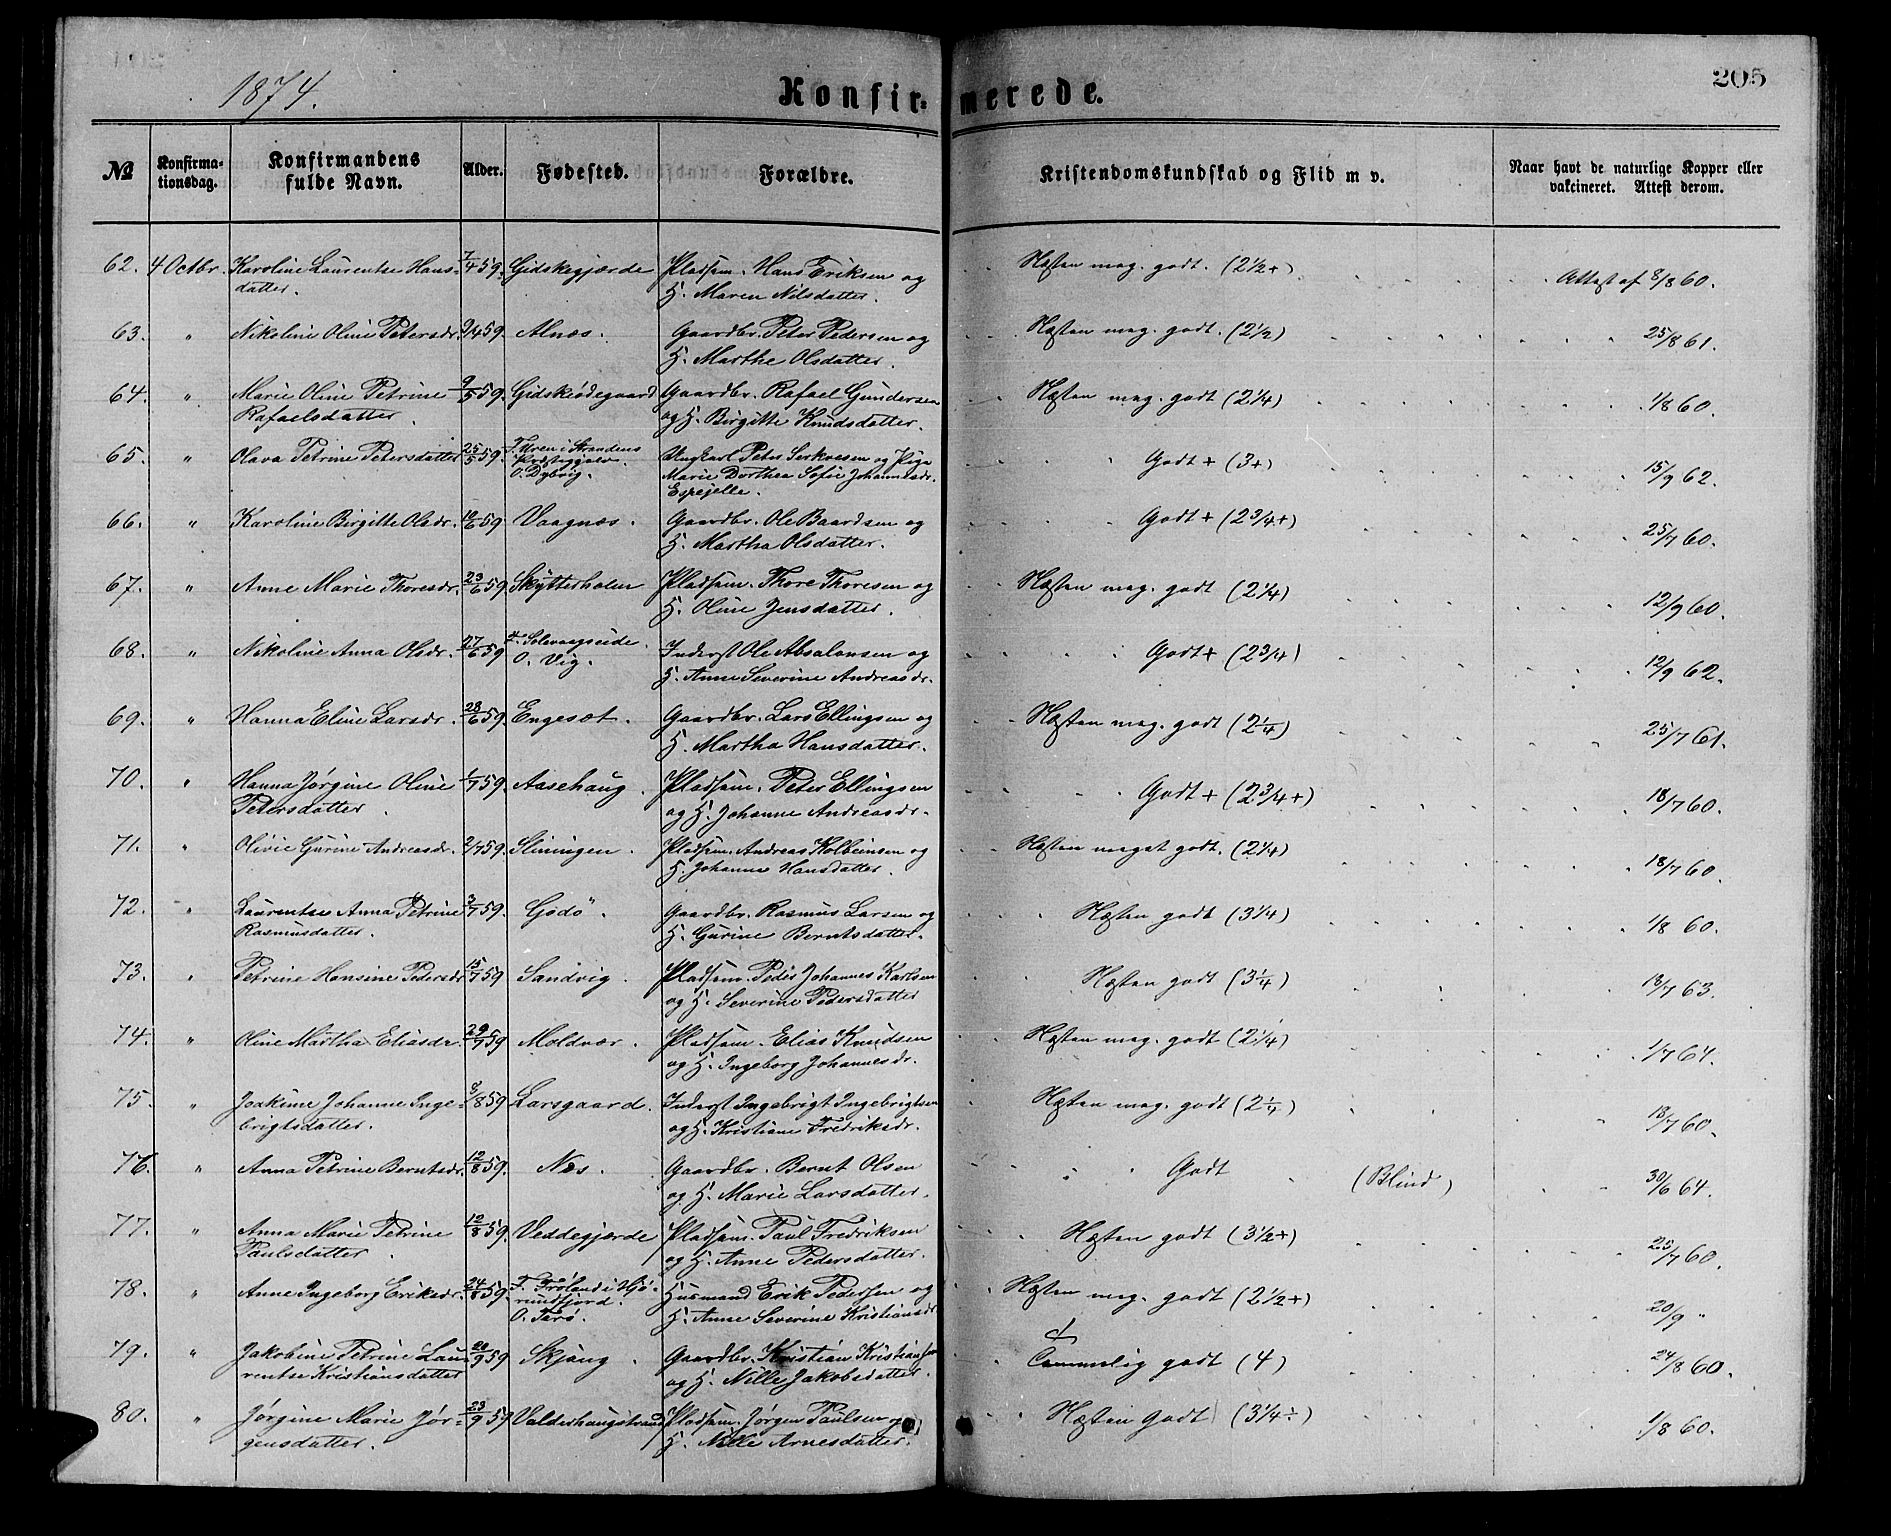 1874. Konfirmerede. 205
No Konfirmationsdag. Konfirmandens fulde Navn. Alder. Fødested. Forældre. Kristendomskundskab og Flid m v. Naar havt de naturlige Kopper eller vakcineret. Attest derom.
62. 4 Octbr. Karoline Laurentse Hans- 7/4 59. Gidskegjærde Pladsm. Hans Eriksen og Næsten meg. godt. (2½+) Attest af 8/8 60.
datter. H. Maren Nilsdatter.
63. " Nikoline Oline Petersdr. 9/4 59. Alnæs. Gaardbr. Peter Pedersen og Næsten meg. godt. (2½) 25/8 61.
H. Marthe Olsdatter.
64. " Marie Oline Petrine 9/5 59. Gidskeødegaard Gaardbr. Rafael Gundersen Næsten meg. godt (2¼) 1/8 60.
Rafaelsdatter og H. Birgitte Knudsdatter.
65. " Olava Petrine Petersdatter 25/5 59. F. Uren i Strandens Ungkarl Peter og Pige Godt + (3+) 15/9 62.
O. Dybvig. Marie Dorthea Sofie Johannesdr.
Espejelle.
66. " Karoline Birgitte Olsdr. 10/6 59. Vaagnæs. Gaardbr. Ole Baardsen og Godt + (2¾+) 25/7 60.
H. Martha Olsdatter.
67. " Anne Marie Thoresdr. 23/6 59. Skytterholen Pladsm. Thore Thoresen og Næsten meg. godt (2¼) 12/9 60.
H. Oline Jensdatter.
68. " Nikoline Anna Olsdr. 27/6 59 F. Solevaagseide. Inderst Ole Absalonsen og Godt + (2¾) 12/9 62.
O. Vig. H. Anne Severine Andreasdr.
69. " Hanna Eline Larsdr. 28/6 59. Engeset. Gaardbr. Lars Ellingsen og Næsten meg. godt (2¼) 25/7 61.
H. Martha Hansdatter.
70. " Hanna Jørgine Oline 1/7 59. Aasehaug. Pladsm. Peter Ellingsen Godt + (2¾+) 18/7 60.
Petersdatter og H. Johanne Andreasdr.
71. " Olivie Gurine Andreasdr. 2/7 59. Sliningen. Pladsm. Andreas Kolbeinsen og Næsten meget godt. (2¼) 18/7 60.
H. Johanne Hansdatter.
72. " Laurentse Anna Petrine 3/7 59. Godø. Gaardbr. Rasmus Larsen og Næsten godt (3¼) 1/8 60.
Rasmusdatter. H. Gurine Berntsdatter.
73. " Petrine Hansine Pedersdr. 15/7 59. Sandvig. Pladsm. Peder Johannes Karlsen Næsten godt (3¼) 18/7 63.
og H. Severine Pedersdatter
74. " Oline Martha Eliasdr. 29/7 59 Moldvær. Pladsm. Elias Knudsen Næsten meg. godt (2¼) 1/7 64.
og H. Ingeborg Johannesdr.
75. " Joakime Johanne Inge- 8/8 59 Larsgaard. Inderst Ingebrigt Ingebrigtsen Næsten meg. godt (2¼) 18/7 60.
brigtsdatter. og H. Kristiane Fredriksdr.
76. " Anna Petrine Berntsdr. 12/8 59. Næs. Gaardbr. Bernt Olsen Godt (Blind) 30/6 64.
og H. Marie Larsdatter.
77. " Anna Marie Petrine 12/8 59. Veddegjærde Pladsm. Paul Fredriksen Næsten godt (3½+) 25/7 60.
Paulsdatter og H. Anne Pedersdatter.
78. " Anne Ingeborg Eriksdr. 24/8 59. F. Frøland i Hjø- Husmand Erik Pedersen og Næsten meg. godt (2½+) 20/9 "
rundfjord. H. Anne Severine Kristiansdr
O. Tørø.
79. " Jakobine Petrine Lau- 20/9 59 Skjong. Gaardbr. Kristian Kristiansen Temmelig godt (4) 24/8 60.
rentse Kristiansdatter og H. Nille Jakobsdatter.
80. " Jørgine Marie Jør- 23/9 59 Valderhaugstrand Pladsm. Jørgen Paulsen og Næsten Godt (3¼÷) 1/8 60.
gensdatter. H. Nille Arnesdatter.